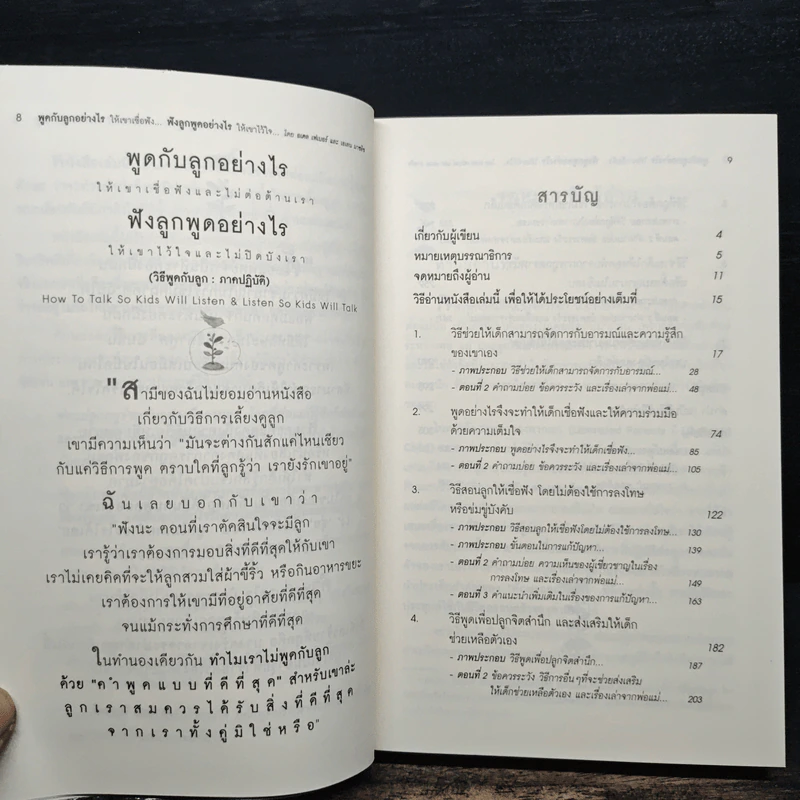 8 พูดกับลูกอย่างไร ให้เขาเชื่อฟัง... ฟังลูกพูดอย่างไร ให้เขาไว้ใจ... โดย อเดล เฟเบอร์ และ เอเลน มาซลิช
พูดกับลูกอย่างไร
ให้เขาเชื่อฟังและไม่ต่อต้านเรา
ฟังลูกพูดอย่างไร
ให้เขาไว้ใจและไม่ปิดบังเรา
(วิธีพูดกับลูก : ภาคปฏิบัติ)
How To Talk So Kids Will Listen & Listen So Kids Will Talk
"สามีของฉันไม่ยอมอ่านหนังสือ
เกี่ยวกับวิธีการเลี้ยงดูลูก
เขามีความเห็นว่า "มันจะต่างกันสักแค่ไหนเชียว
กับแค่วิธีการพูด ตราบใดที่ลูกรู้ว่า เรายังรักเขาอยู่"
ฉันเลยบอกกับเขาว่า
"ฟังนะ ตอนที่เราตัดสินใจจะมีลูก
เรารู้ว่าเราต้องการมอบสิ่งที่ดีที่สุดให้กับเขา
เราไม่เคยคิดที่จะให้ลูกสวมใส่ผ้าขี้ริ้ว หรือกินอาหารขยะ
เราต้องการให้เขามีที่อยู่อาศัยที่ดีที่สุด
จนแม้กระทั่งการศึกษาที่ดีที่สุด
ในทำนองเดียวกัน ทำไมเราไม่พูดกับลูก
ด้วย "คำพูดแบบที่ดีที่สุด" สำหรับเขาล่ะ
ลูกเราสมควรได้รับสิ่งที่ดีที่สุด
จากเราทั้งคู่มิใช่หรือ"
9
สารบัญ
เกี่ยวกับผู้เขียน 4
หมายเหตุบรรณาธิการ 5
จดหมายถึงผู้อ่าน 11
วิธีอ่านหนังสือเล่มนี้ เพื่อให้ได้ประโยชน์อย่างเต็มที่ 15
1. วิธีช่วยให้เด็กสามารถจัดการกับอารมณ์และความรู้สึก
ของเขาเอง 17
- ภาพประกอบ วิธีช่วยให้เด็กสามารถจัดการกับอารมณ์... 28
- ตอนที่ 2 คำถามบ่อย ข้อควรระวัง และเรื่องเล่าจากพ่อแม่... 48
2. พูดอย่างไรจึงจะทำให้เด็กเชื่อฟังและให้ความร่วมมือ
ด้วยความเต็มใจ 74
- ภาพประกอบ พูดอย่างไรจึงจะทำให้เด็กเชื่อฟัง... 85
- ตอนที่ 2 คำถามบ่อย ข้อควรระวัง และเรื่องเล่าจากพ่อแม่... 105
3. วิธีสอนลูกให้เชื่อฟัง โดยไม่ต้องใช้การลงโทษ
หรือข่มขู่บังคับ 122
- ภาพประกอบ วิธีสอนลูกให้เชื่อฟังโดยไม่ต้องใช้การลงโทษ... 130
- ภาพประกอบ ขั้นตอนในการแก้ปัญหา... 139
- ตอนที่ 2 คำถามบ่อย ความเห็นของผู้เชี่ยวชาญในเรื่อง
การลงโทษ และเรื่องเล่าจากพ่อแม่... 149
- ตอนที่ 3 คำแนะนำเพิ่มเติมในเรื่องของการแก้ปัญหา... 163
4. วิธีพูดเพื่อปลูกจิตสำนึก และส่งเสริมให้เด็ก
ช่วยเหลือตัวเอง 182
- ภาพประกอบ วิธีพูดเพื่อปลูกจิตสำนึก... 187
- ตอนที่ 2 ข้อควรระวัง วิธีการอื่นๆที่จะช่วยส่งเสริม
ให้เด็กช่วยเหลือตัวเอง และเรื่องเล่าจากพ่อแม่... 203